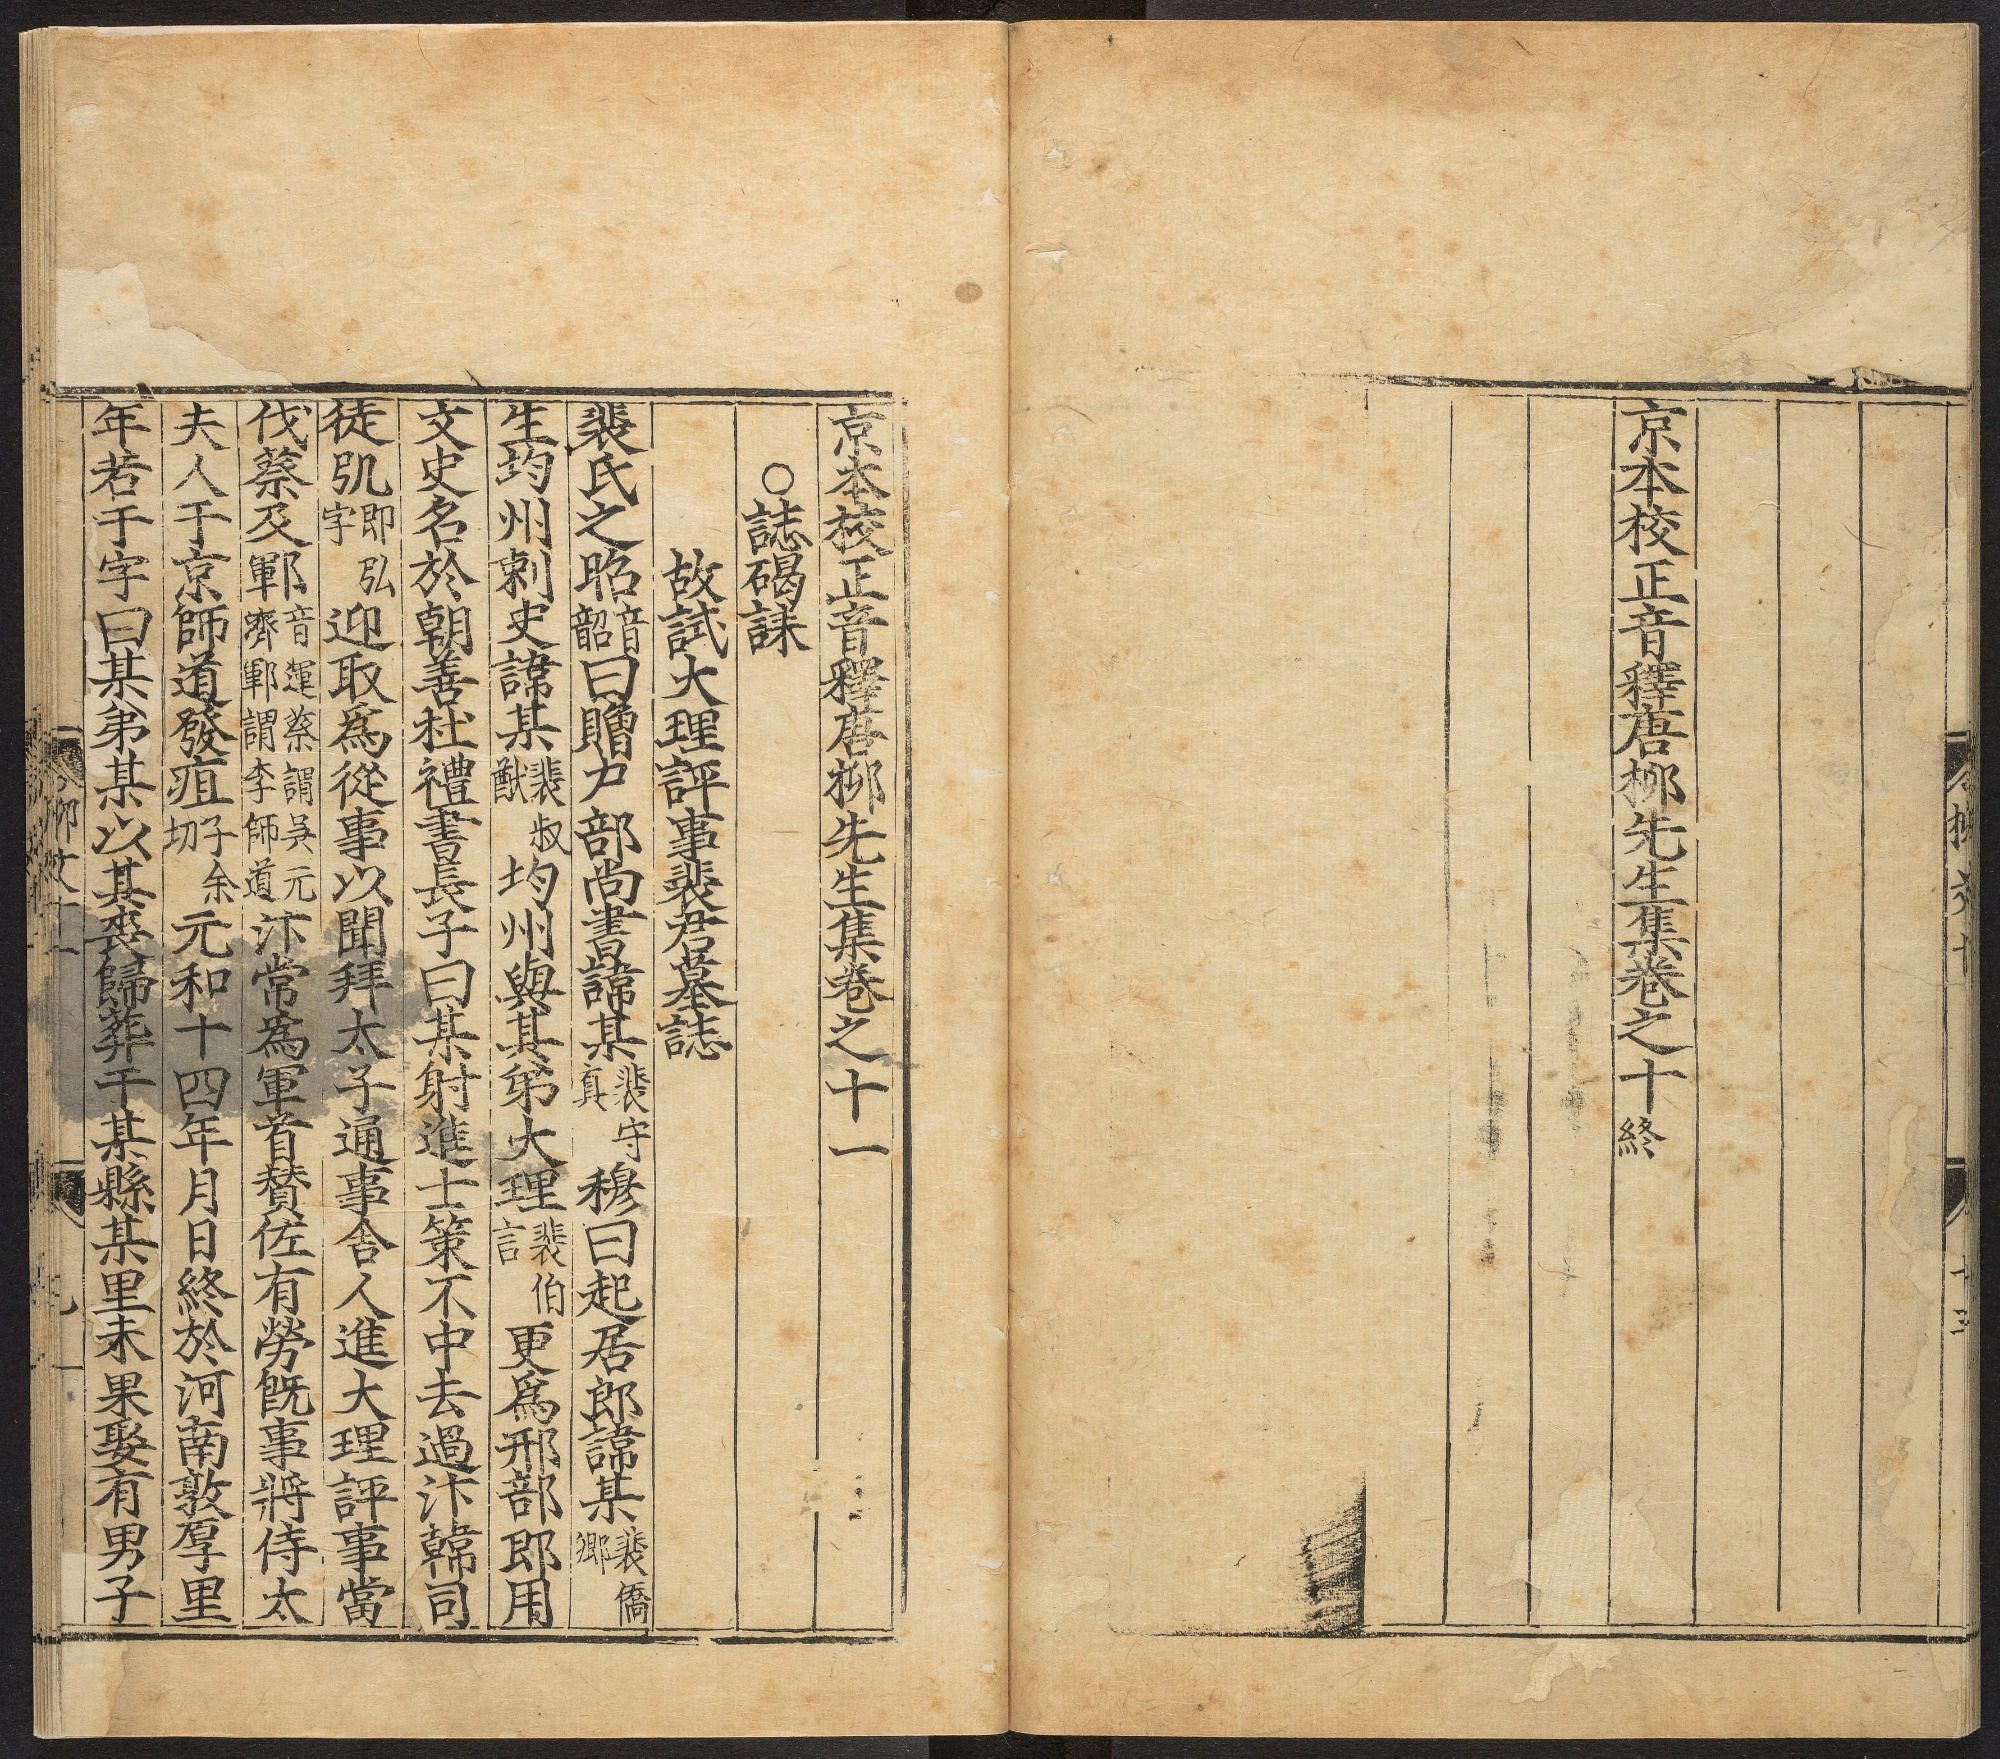 京本校正音釋唐柳先生集卷之十終
京本校正音釋唐柳先生集卷之十一
○誌碣誄
故試大理評事裴君墓誌
裴氏之昭音韶曰贈户部尚書諱某裴守真穆曰起居郎諱某裴僑卿
生均州刺史諱某裴叔猷均州與其弟大理裴伯言更爲刑部郎用
文史名於朝善杜禮書長子曰某射進士策不中去過汴韓司
徒弘即弘字迎取爲從事以聞拜太子通事舍人進大理評事當
伐蔡及鄆音運蔡謂吳元濟鄆謂李師道汴常爲軍首贊佐有勞旣事將侍太
夫人于京師道發疽子余切元和十四年月日終於河南敦厚里
年若干字曰某弟某以其喪歸葬于某縣某里未果娶有男子